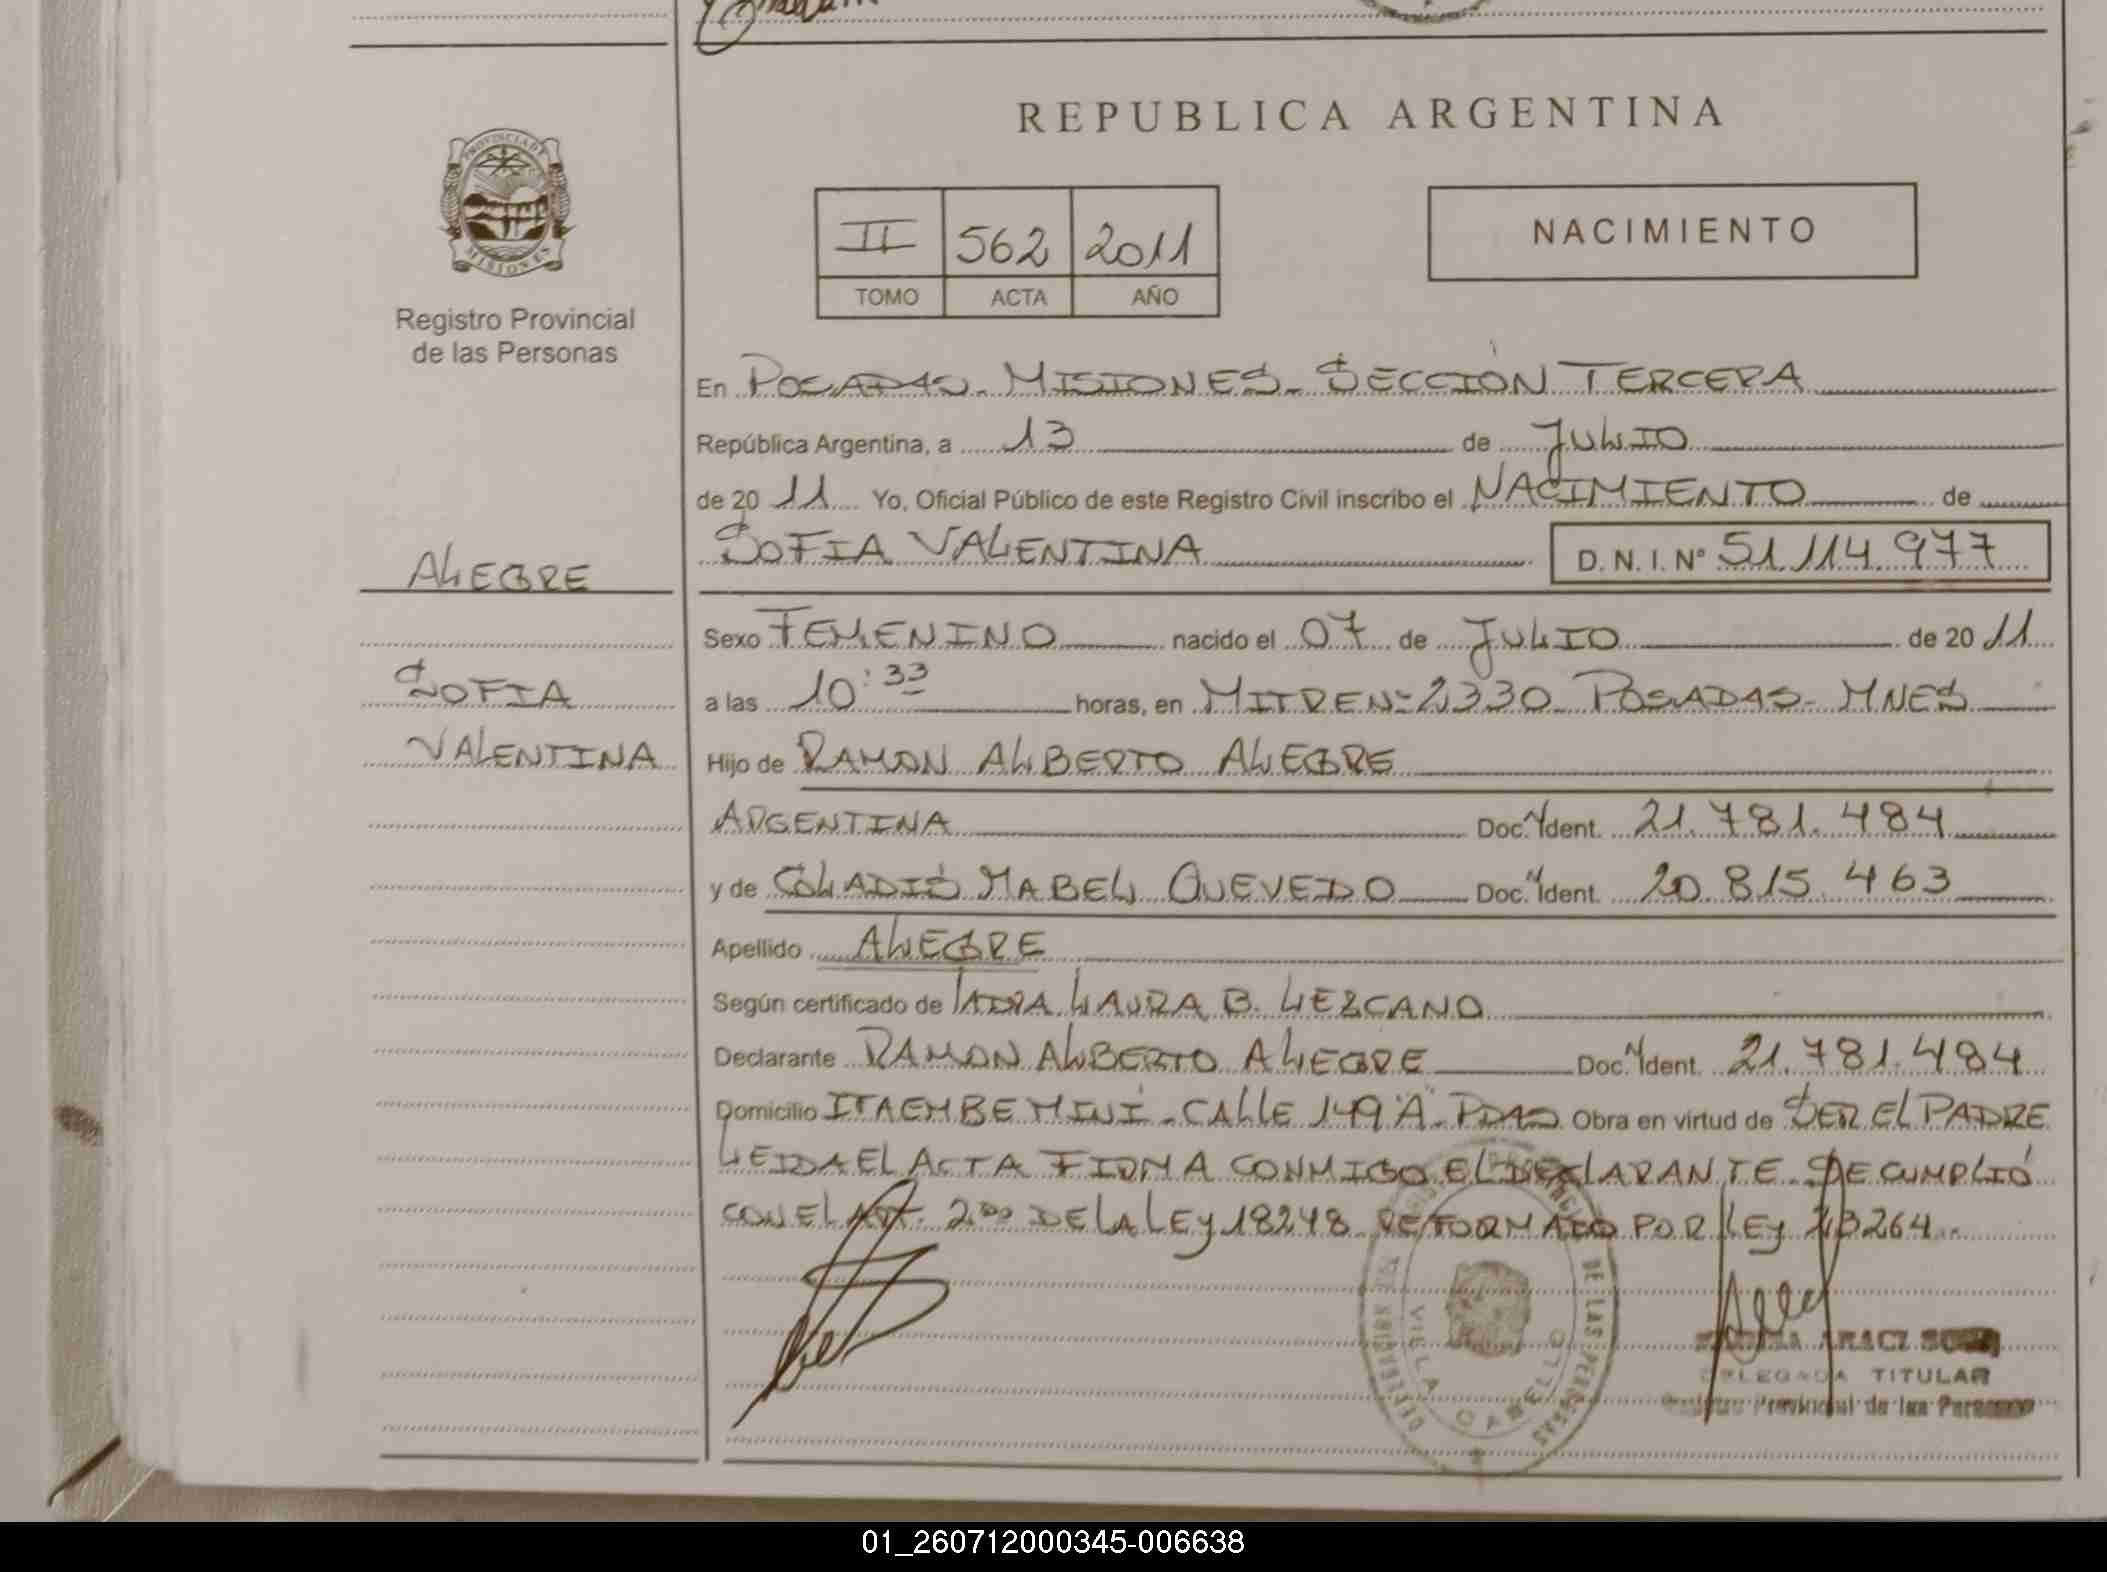 REPUBLICA ARGENTINA
PROVINCIA DE
MISIONES
Registro Provincial
de las Personas
II 562 2011
TOMO ACTA AÑO
NACIMIENTO
En POSADAS - MISIONES - SECCIÓN TERCERA
República Argentina, a 13 de JULIO
de 20 11 Yo, Oficial Público de este Registro Civil inscribo el NACIMIENTO de
SOFIA VALENTINA D.N.I. Nº 51.114.977
ALEGRE
SOFIA
VALENTINA
Sexo FEMENINO nacido el 07 de JULIO de 20 11
a las 10:33 horas, en MITRE Nº 2330 POSADAS - MNES
Hijo de RAMON ALBERTO ALEGRE
ARGENTINA Doc. Ident. 21.781.484
y de MABEL QUEVEDO Doc. Ident. 20.815.463
Apellido ALEGRE
Según certificado de LAURA B. LEZCANO
Declarante RAMON ALBERTO ALEGRE Doc. Ident. 21.781.484
Domicilio ITAEMBE MINI - CALLE 149 "A" - PDAS Obra en virtud de SER EL PADRE
LEIDA EL ACTA FIRMA CONMIGO EL DECLARANTE. SE CUMPLIÓ
CON EL ART. 2do DE LA LEY 18248 REFORMADO POR LEY 23264
DE LAS PERSONAS
VILLA CABELLO
DELEGADA TITULAR
Provincial de las Personas
01_260712000345-006638